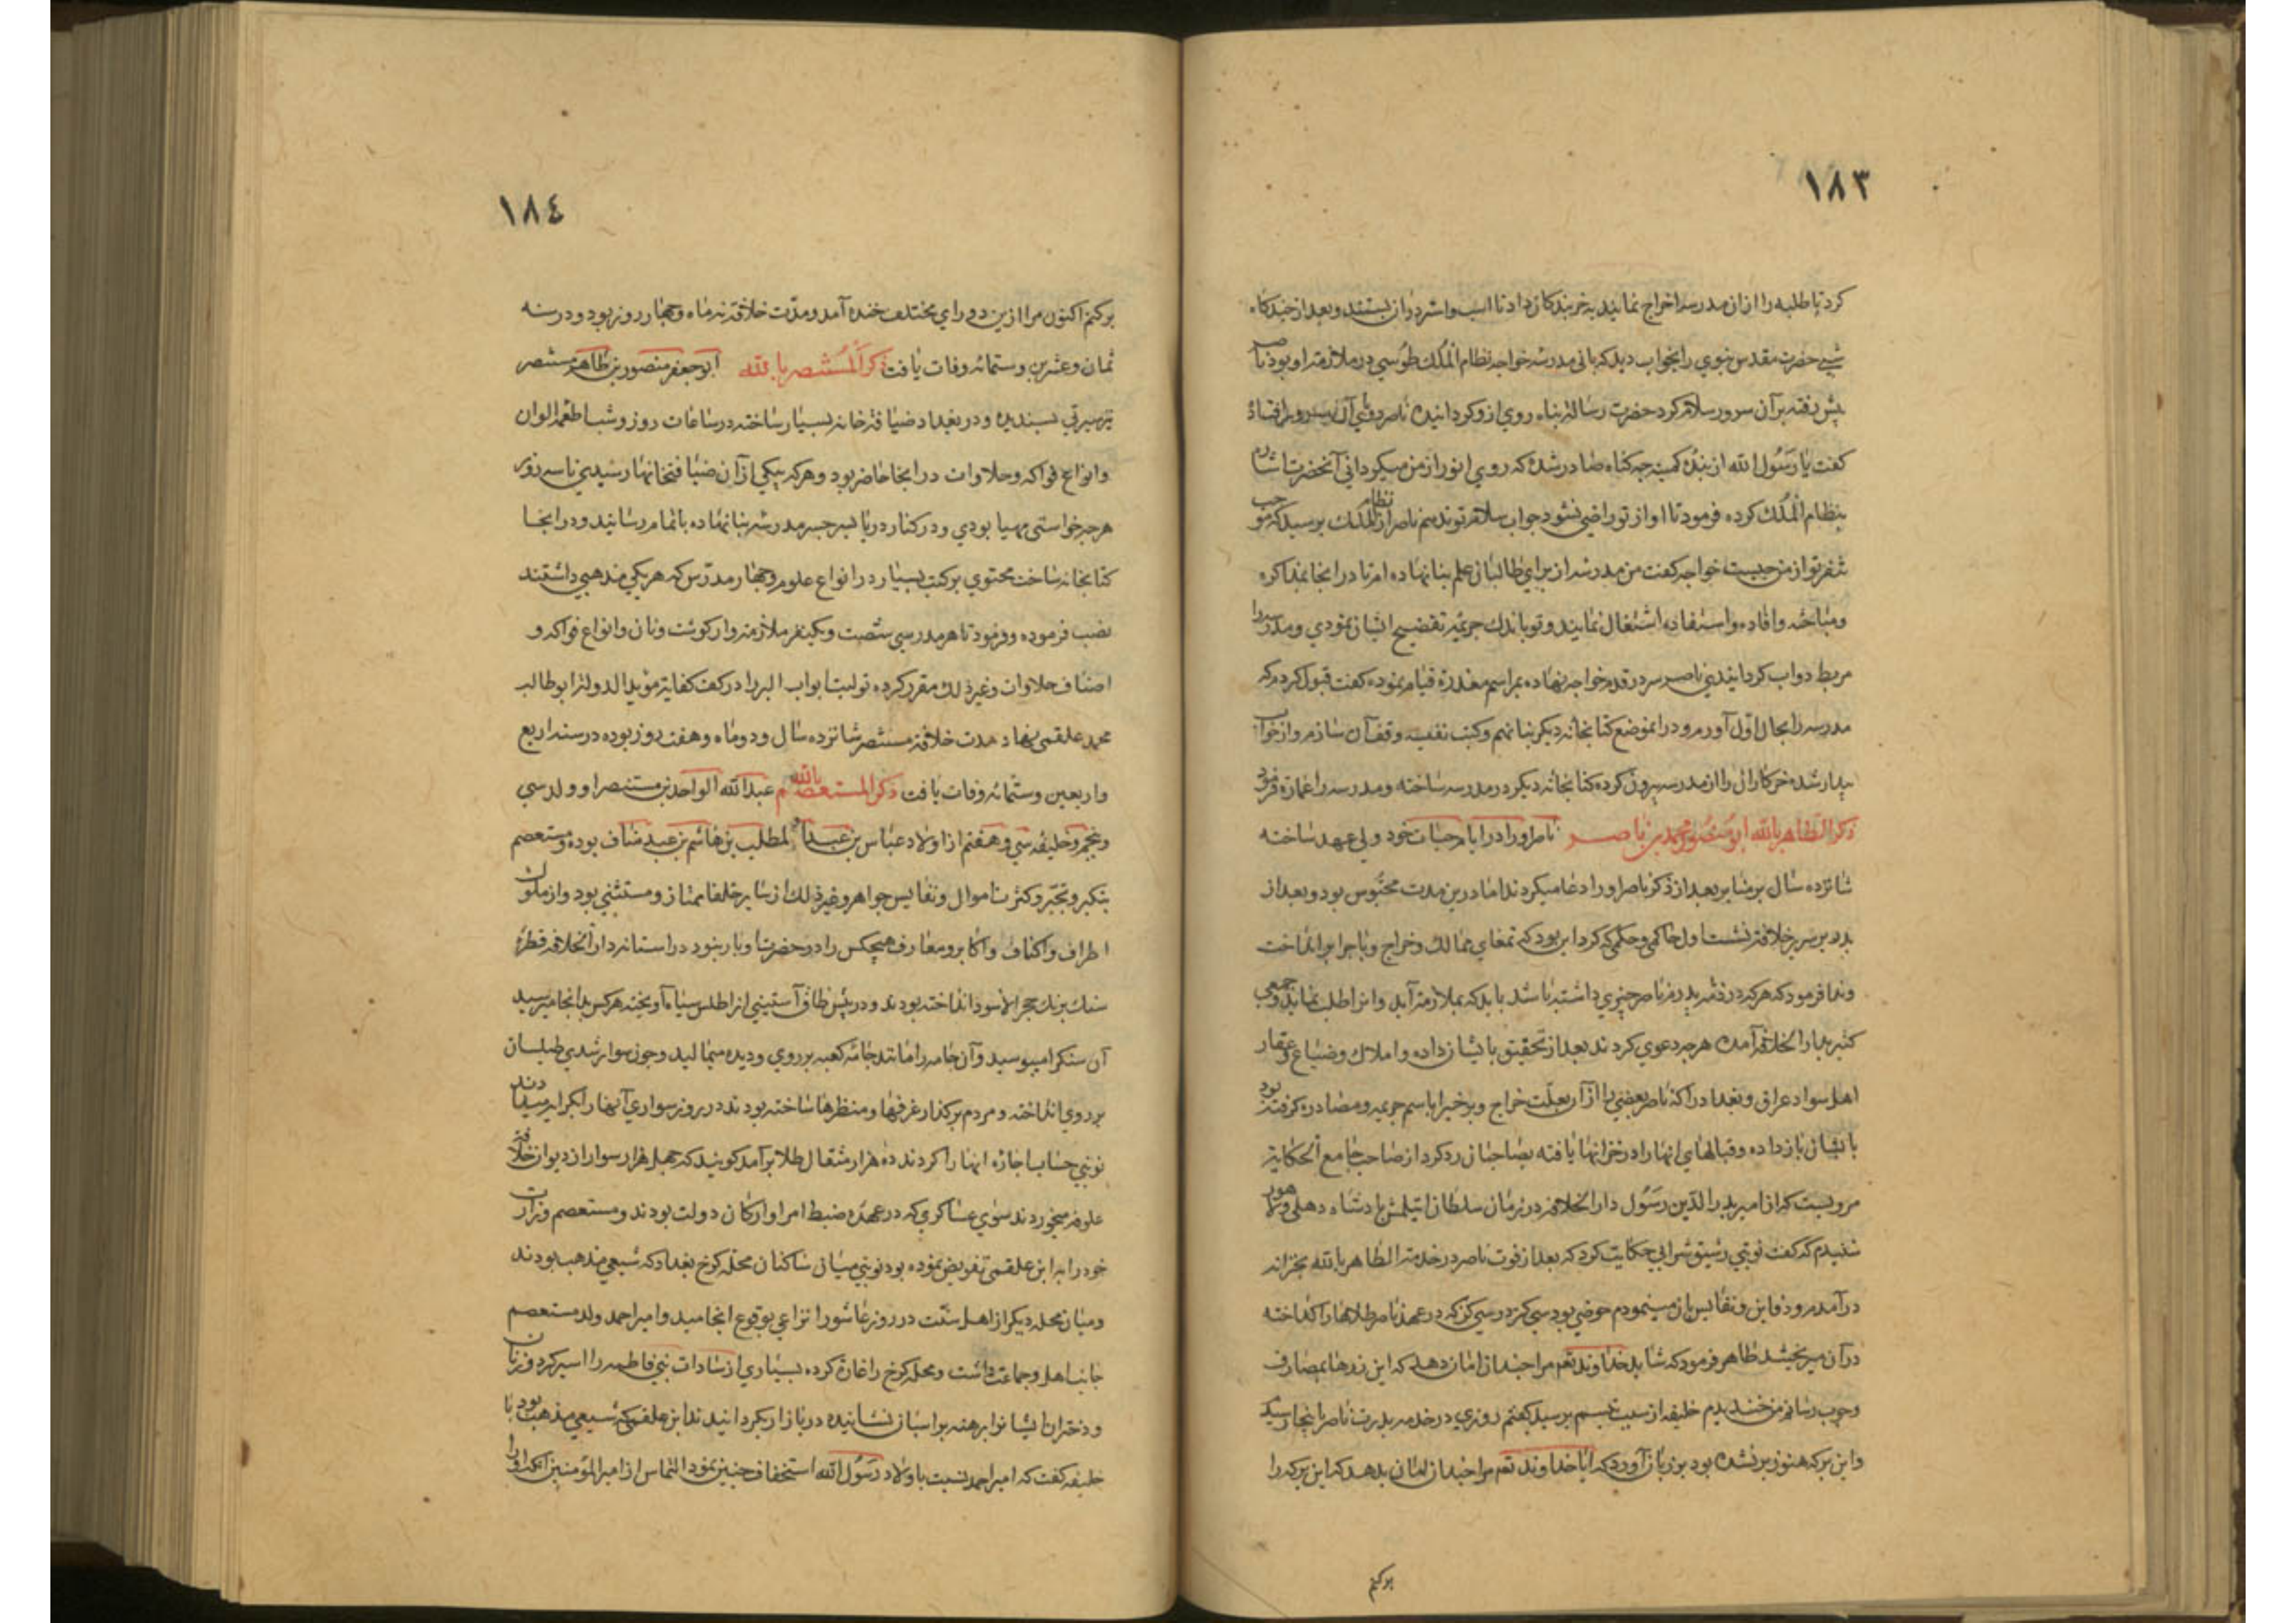 ١٨٣
كرد تا طلبه را ازان مدرسه اخراج نمايند به خربندكان داد تا اسب و استر دران بستند و بعد از چندكاه
شبي حضرت مقدس نبوي را بخواب ديد كه باني مدرسه خواجه نظام الملك طوسي در ملازمت او بود ناصر
پيش رفته بر آن سرور سلام كرد حضرت رسالت پناه روي ازو كردانيده ناصر آن سرور افتاده
كفت يا رسول الله از بندۀ كمينه چه كناه صادر شده كه روي انور از من ميكرداني آنحضرت اشارة
بنظام الملك كرده فرمود تا او از تو راضي نشود جواب سلام تو ندهم ناصر از نظام الملك پرسيد كه موجب
تنفر تو از من چيست خواجه كفت من مدرسه از براي طالبان علم بنا نهاده ام تا در انجا بمذاكره
ومباحثه وافاده واستفاده اشتغال نمايند و تو باندك جريمه تفضيح ايشان نمودي و مدرسه را
مربط دواب كردانيدي ناصر سر در قدم خواجه نهاده بمراسم معذرة قيام نموده كفت قبول كردم كه
مدرسه را بحال اول آورم و در انموضع كتابخانه ديكر بنا نهم وكتب نفيسه وقف آن سازم و از خواب
بيدار شده را از مدرسه بيرون كرده كتابخانه ديكر در مدرسه ساخته و مدرسه را عمارة فرمود
ذكر الظاهر بالله ابو منصور محمد بن ناصر ناصر او را در ايام حيات خود ولي عهد ساخته
شانزده سال بر منابر بعد از ذكر ناصر او را دعا ميكردند اما درين مدت محبوس بود و بعد از
پدر بر سرير خلافة نشست اول حكمي كه كرد اين بود كه تمغاي ممالك وخراج و باج را برانداخت
وندا فرمود كه هر كه در ذمه پدرم ناصر چيزي داشته باشد بايد كه بملازمة آيد وانرا طلب نمايد وجمعي
كثير بدار الخلافة آمده هرچه دعوي كردند بعد از تحقيق بايشان داده و املاك وضياع وعقار
اهل سواد عراق و بغداد را كه ناصر بعضي را از آن بعلت خراج وبرخيرا باسم جريمه و مصادره كرفته بود
بايشان باز داده وقبالهاي انها را در خزانها يافته بصاحبان رد كرد از صاحب جامع الحكاية
مرويست كه از امير بدر الدين رسول دار الخلافة در زمان سلطان ايتلمش پادشاه دهلي و لاهور
شنيدم كه كفت نوبتي شرابي حكايت كرد كه بعد از فوت ناصر در خدمة الظاهر بالله بخزانه
درآمدم و دفاين و نفايس ان مينمودم حوضي بود سي كز در سي كز كه در عهد ناصر طلاها را كداخته
دران ميريختند ظاهر فرمود كه شايد خداوند تعم مرا چندان امان دهد كه اين زرها بمصارف
وجوب رسانم من خنديدم خليفه از سبب تبسم پرسيد كفتم روزي در خدمه پدرت ناصر باينجا رسيد
و اين بركه هنوز پر نشده بود بر زبان آورد كه ايا خداوند تعم مرا چندان امان بدهد كه اين بركه را
بركنم
١٨٤
بركنم اكنون مرا ازين دو راي مختلف خنده آمد و مدّت خلافة نه ماه و چهار روز بود و در سنه
ثمان وعشرين وستمائه وفات يافت ذكر المستنصر بالله ابو جعفر منصور بن طاهر مستنصر
سيرتي پسنديده و در بغداد ضيافة خانه بسيار ساخته در ساعات روز و شب اطعمه الوان
وانواع فواكه وحلاوات در انجا حاضر بود و هر كه بيكي از آن ضيافتخانها رسيدي تا سه روز
هر چه خواستي مهيا بودي ودر كنار دريا مدرسه بنا نهاده باتمام رسانيد و در انجا
كتابخانه ساخت محتوي بر كتب بسيار در انواع علوم و چهار مدرّس كه هر يكي مذهبي داشتند
نصب فرموده و فرمود تا هر مدرسي شصت و يكنفر ملازمه وار كوشت ونان وانواع فواكه و
اصناف حلاوات وغير ذلك مقرر كرده توليت ابواب البر را در كف كفاية مويد الدوله ابو طالب
محمد علقمي نهاد مدت خلافة مستنصر شانزده سال و دو ماه و هفت روز بوده در سنه اربع
واربعين وستمائه وفات يافت ذكر المستعصم بالله عبد الله الواحد بن مستنصر او ولد سي
وپنجم وخليفه سي وهفتم از اولاد عباس بن عبد المطلب بن هاشم بن عبد مناف بوده ومستعصم
بتكبر وتجبر وكثرت اموال ونفايس جواهر وغير ذلك از ساير خلفا ممتاز و مستثني بود و از ملوك
اطراف واكناف واكابر ومعارف هيچكس را در حضرت او بار نبود در استانه دار الخلافه قطرۀ
سنك برنك حجر الاسود انداخته بودند و در پيش طاق آستيني از اطلس سياه آويخته هر كس بدانجا ميرسيد
آن سنكرا ميبوسيد وآن جامه را مانند جامۀ كعبه بر روي و ديده ميماليد وچون سوار شدي طيلسان
بر روي انداخته و مردم بر كذار غرفها و منظرها ساخته بودند در روز سواري آنها را بكرايه ميدادند
نوبتي حساب اجاره انها را كردند ده هزار مثقال طلا برآمد كويند كه چهل هزار سوار از ديوان خلافة
علوفه ميخوردند سواي عساكري كه در عهده ضبط امرا و اركان دولت بودند ومستعصم وزارت
خود را به ابن علقمي تفويض نموده بود نوبتي ميان ساكنان محله كرخ بغداد كه شيعي مذهب بودند
وميان محله ديكر از اهل سنّت در روز عاشورا نزاعي بوقوع انجاميد وامير احمد ولد مستعصم
جانب اهل وجماعت داشت ومحله كرخ را غارة كرده بسياري از سادات بني فاطمه را اسير كرد و زنان
و دختران ايشانرا برهنه بر اسبان نشانيده در بازار بكردانيدند ابن علقمي كه شيعي مذهب بود با
خليفه كفت كه امير احمد نسبت باولاد رسول الله استخفاف چنين نمود التماس از امير المؤمنين انكه او را